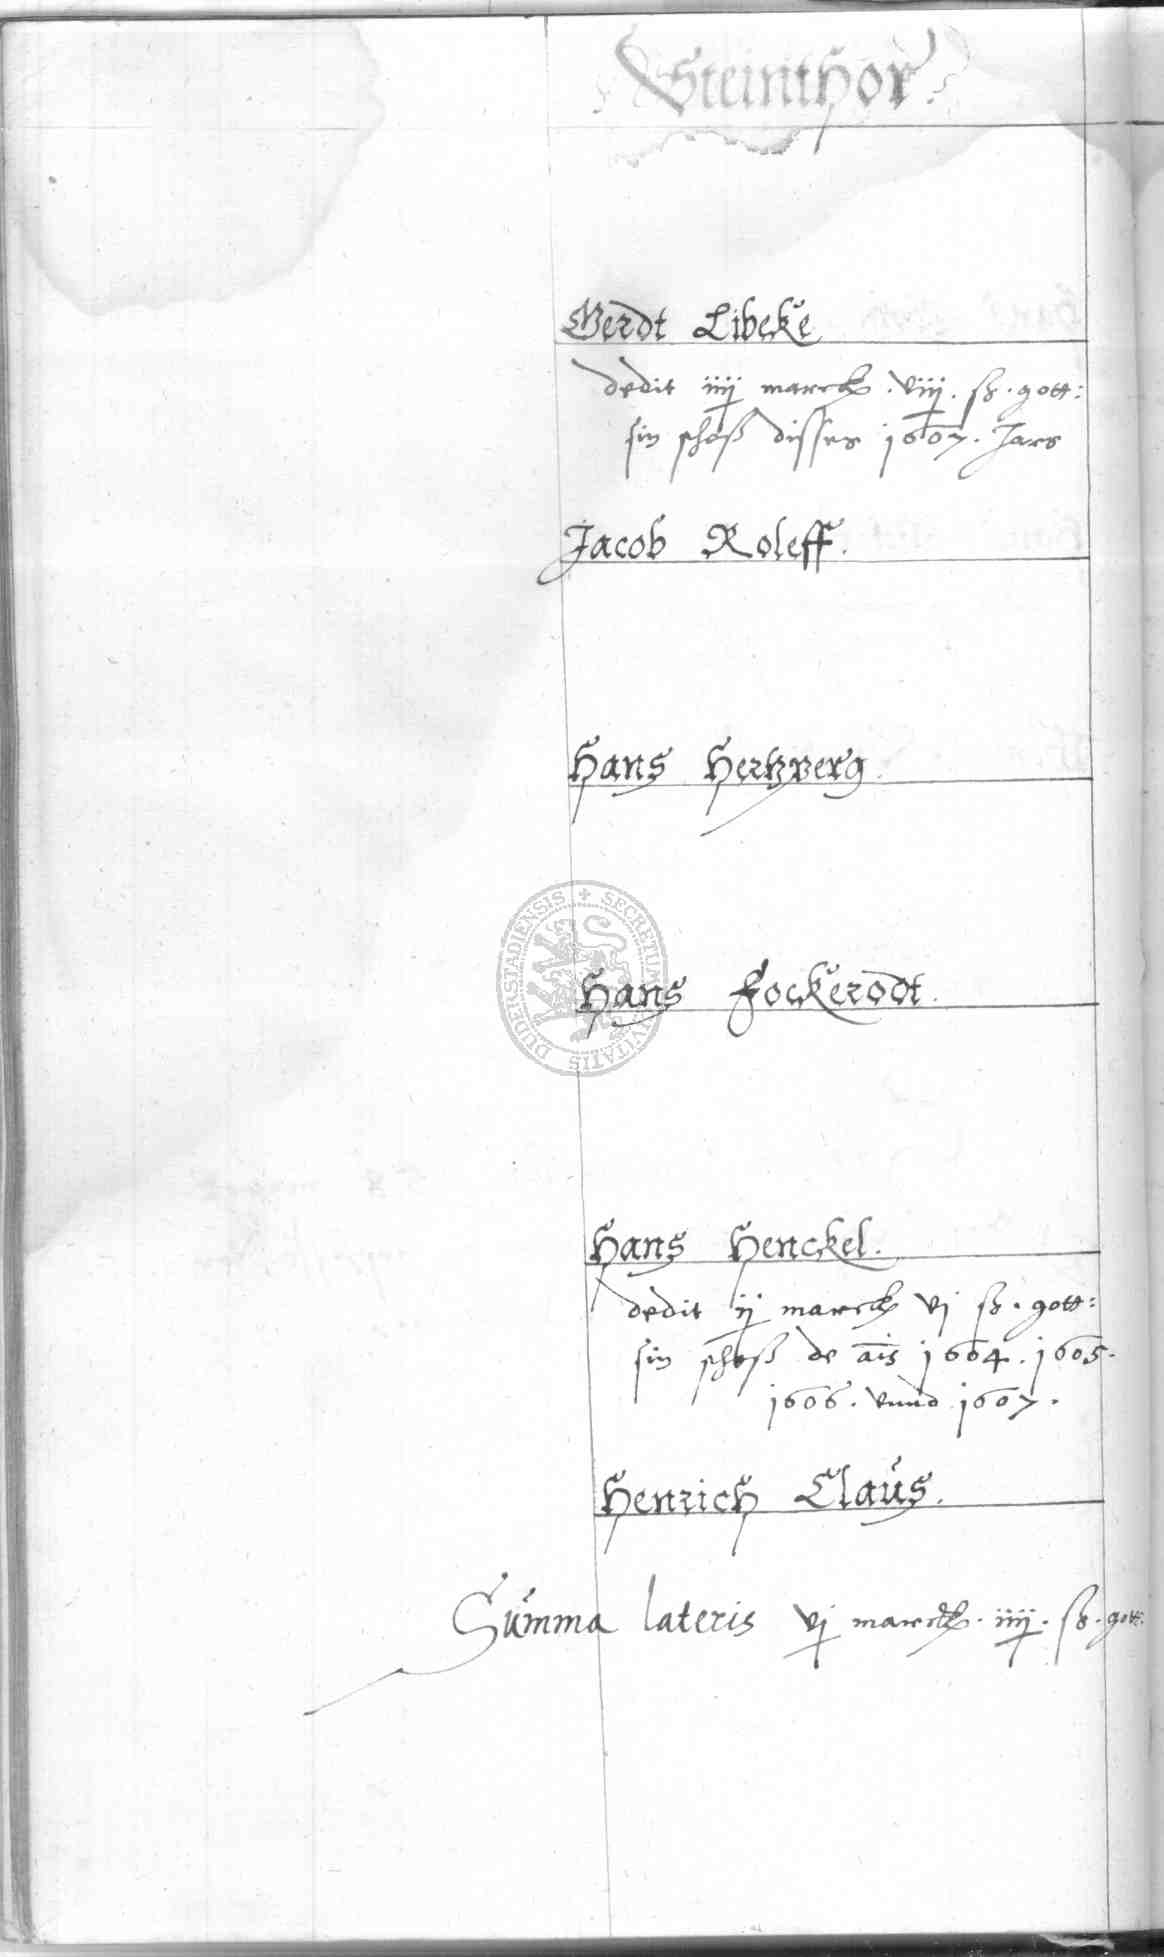 Steinthor.
Gerdt Libcke
dedit iiij marck. viij. ß. gott:
sin schoß disses 1607. Jars
Jacob Roleff.
Hans Hertzberg.
SECRETUM CIVITATIS DUDERSTADIENSIS
Hans Fockerodt.
Hans Henckel.
dedit ij marck vj ß. gott:
sin schoß de ais 1604. 1605.
1606. vnnd 1607.
Henrich Claus.
Summa lateris vj marck. iiij. ß. gott: